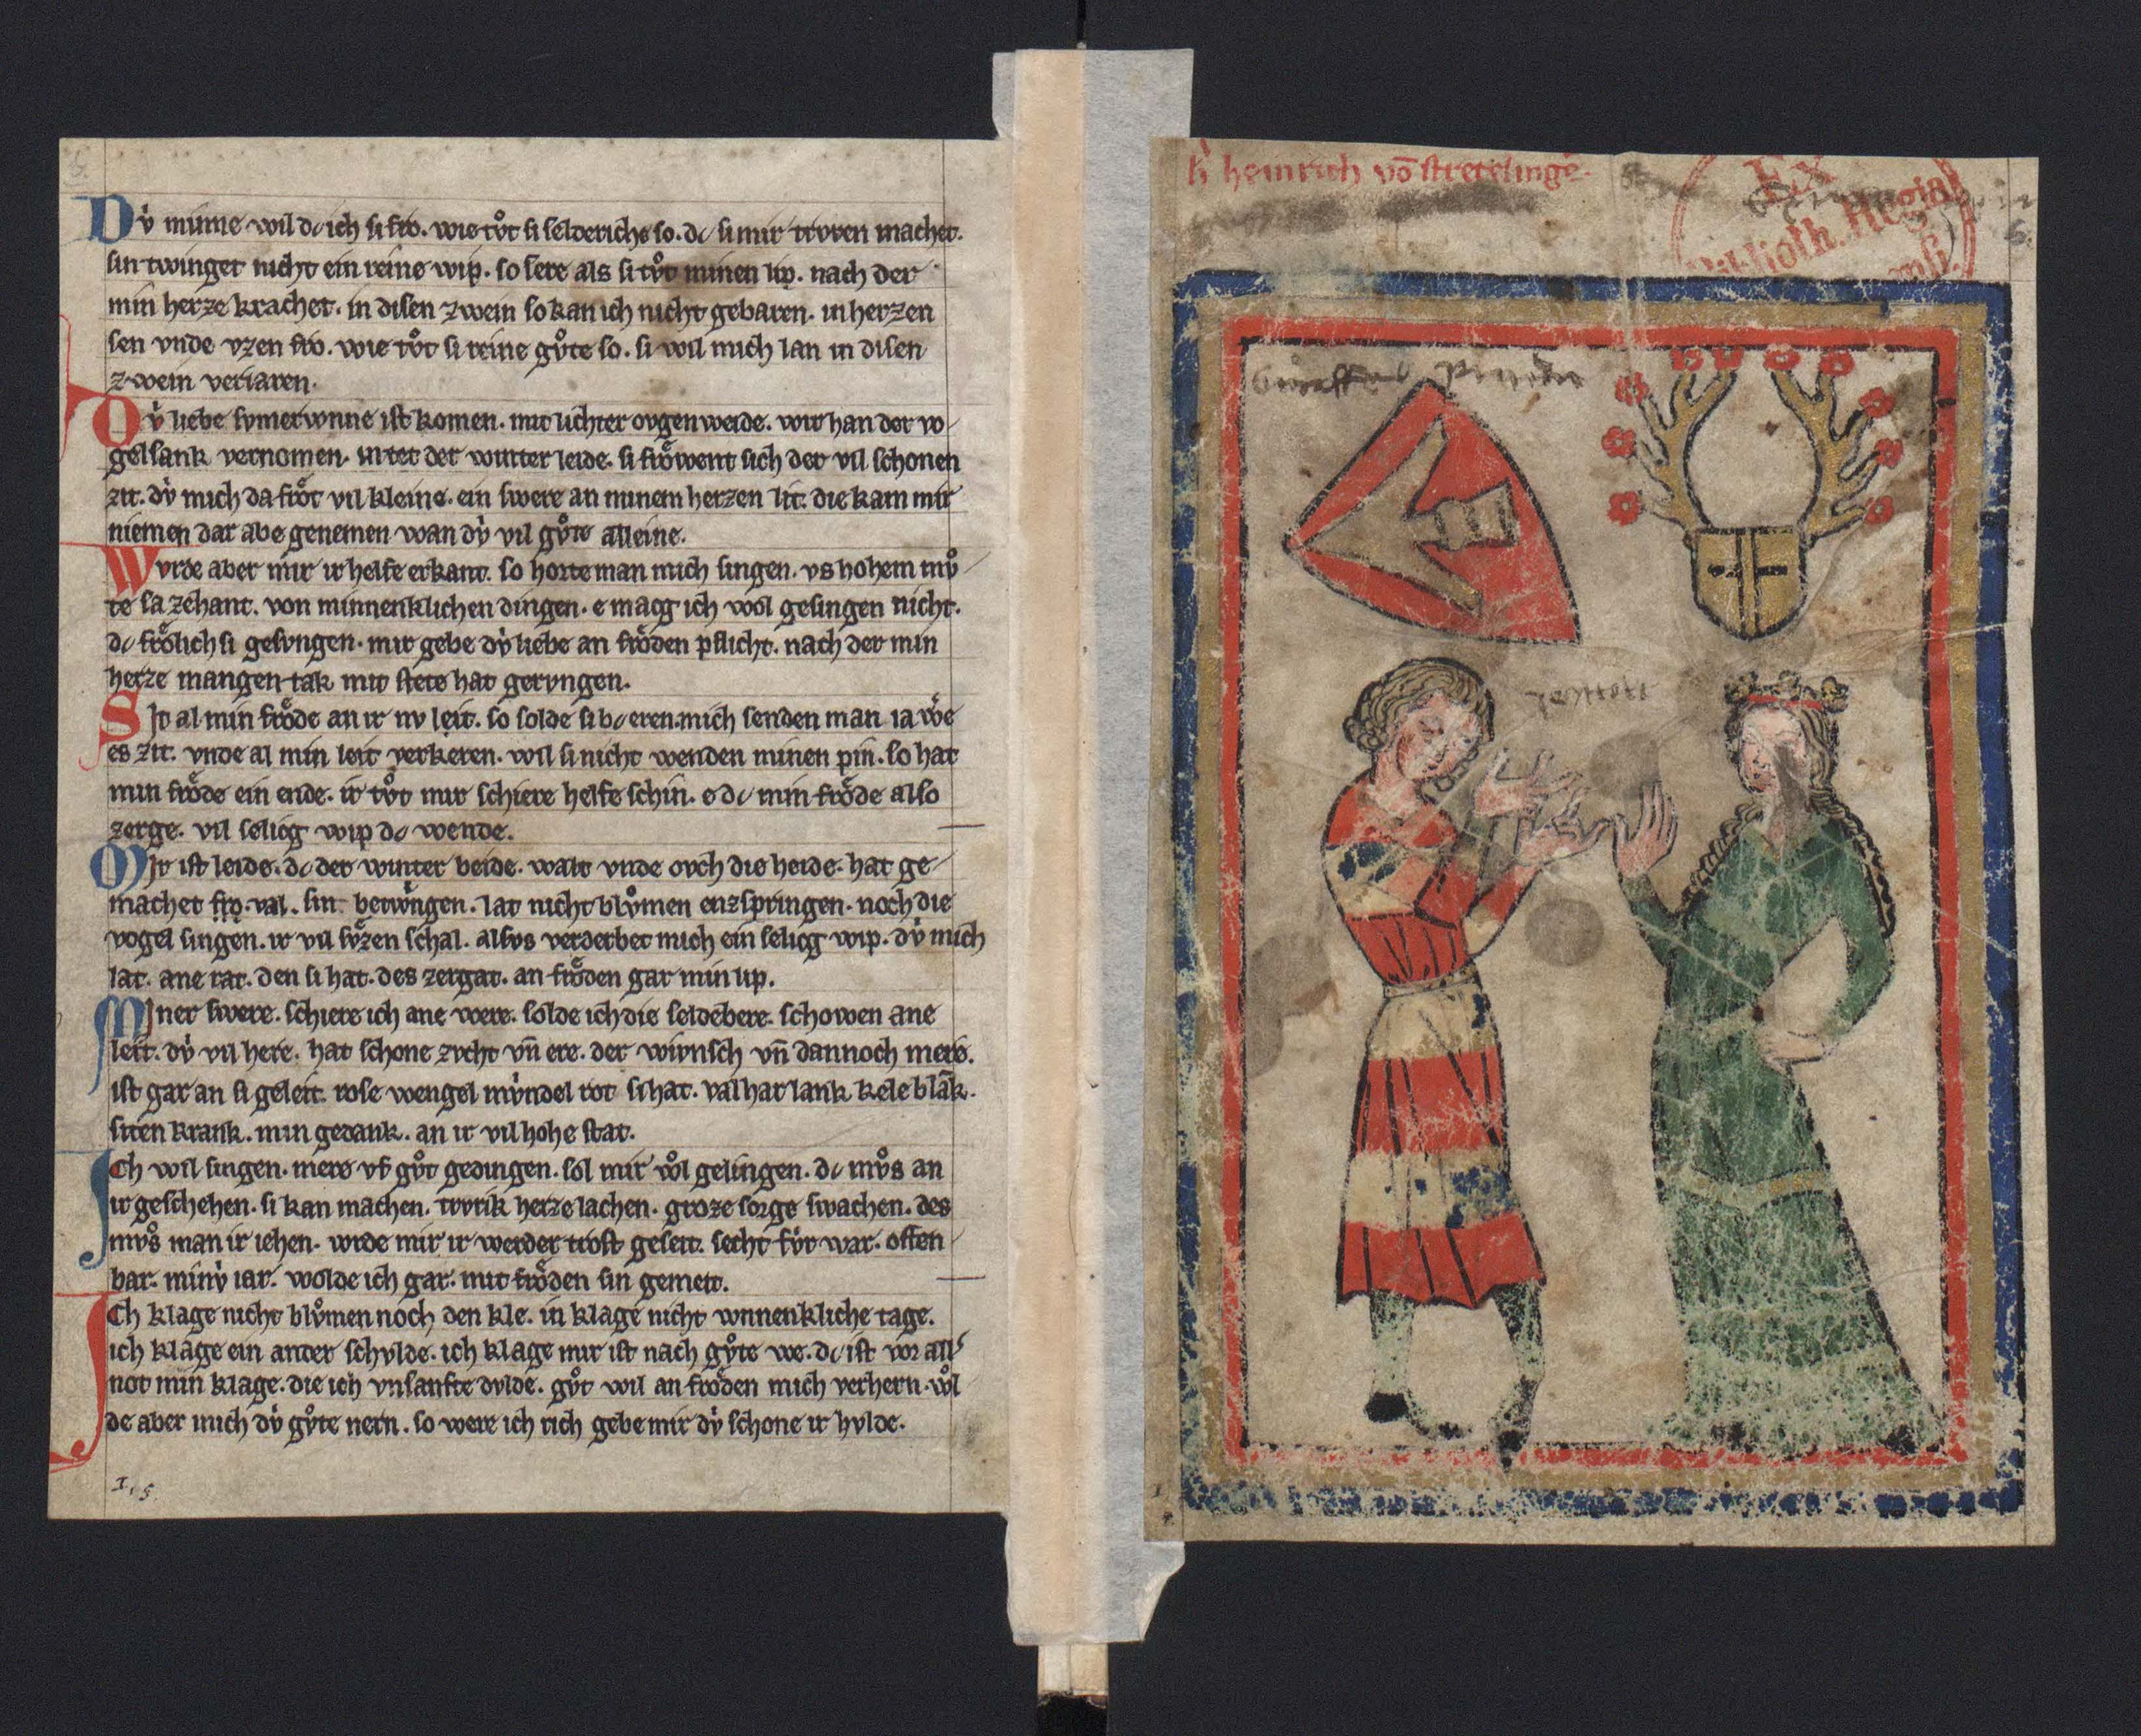 Dv̍ minne wil dc ich si fro. wie tv̊t si selderiche so. dc si mir trvren machet.
sin twinget nicht ein reine wip. so sere als si tv̊t minen lip. nach der
min herze krachet. in disen zwein so kan ich nicht gebaren. in herzen
sen vnde vzen fro. wie tv̊t si reine gv̊te so. si wil mich lan in disen
zwein veriaren.
Dv̍ liebe svmerwnne ist komen. mit lichter ovgen weide. wir han der vo
gelsank vernomen. in tet der winter leide. si frôwent sich der vil schonen
zit. dv̍ mich da frôt vil kleine. ein swere an minem herzen lit. die kam mir
niemen dar abe genemen wan dv̍ vil gv̊te alleine.
Wurde aber mir ir helfe erkant. so horte man mich singen. vs hohem mv̊
te sa zehant. von minnenklichen dingen. e macg ich wol gesingen nicht.
dc frôlich si gesvngen. mir gebe dv̍ liebe an frôden pflicht. nach der min
herze mangen tak mit stete hat gervngen.
Sit al min frôde an ir nv leit. so solde si bc eren. mich senden man ia we
es zit. vnde al min leit verkeren. wil si nicht wenden minen pin. so hat
min frôde ein ende. ir tv̊t mir schiere helfe schin. e dc min frôde also
zerge. vil selicg wip dc wende.
Mir ist leide. dc der winter beide. walt vnde ovch die heide. hat ge
machet val. sin betwngen. lat nicht blv̊men enzspringen. noch die
vogel singen. ir vil sv̊zen schal. alsvs verderbet mich ein selicg wip. dv̍ mich
lat. ane rat. den si hat. des zergat. an frôden gar min lip.
Miner swere. schiere ich ane were. solde ich die seldebere. schowen ane
leit. dv̍ vil here. hat schone zvcht vn̄ ere. der wnsch vn̄ dannoch mere.
ist gar an si geleit. rose wengel mv̍ndel rot si hat. val har lank kele blāk.
siten krank. min gedank. an ir vil hohe stat.
Ich wil singen. mere vf gv̊t gedingen. sol mir wol gelingen. dc mv̊s an
ir geschehen. si kan machen. trvrik herze lachen. groze sorge swachen. des
mv̊s man ir iehen. wrde mir ir werder trost geseit. secht fv̍r war. offen
bar. minv̍ iar. wolde ich gar. mit frôden sin gemeit.
Ich klage nicht blv̊men noch den kle. in klage nicht wnnenkliche tage.
ich klage ein ander schvlde. ich klage mir ist nach gv̊te we. dc ist vor all'
not min klage. die ich vnsanfte dvlde. gv̊t wil an frôden mich verhern. wl
de aber mich dv̍ gv̊te nern. so were ich rich gebe mir dv̍ schone ir hvlde.
h' heinrich vō stretelingē.
Ex
Biblioth. Regia